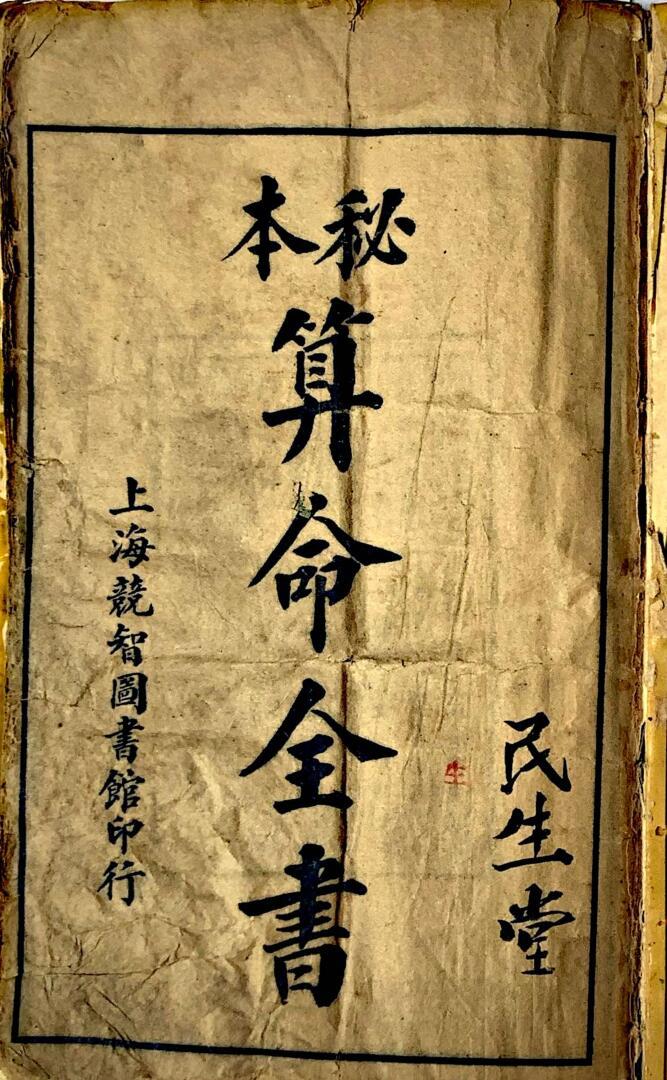 民生堂
生
秘本
算命全書
上海競智圖書館印行